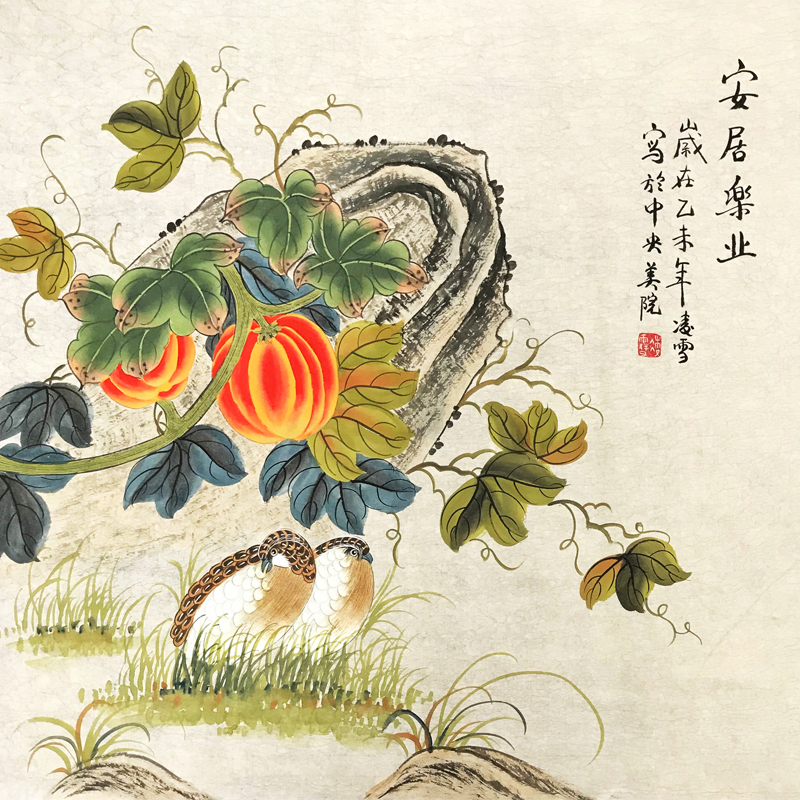 安居樂业
歲在乙未年凌雪
写於中央美院